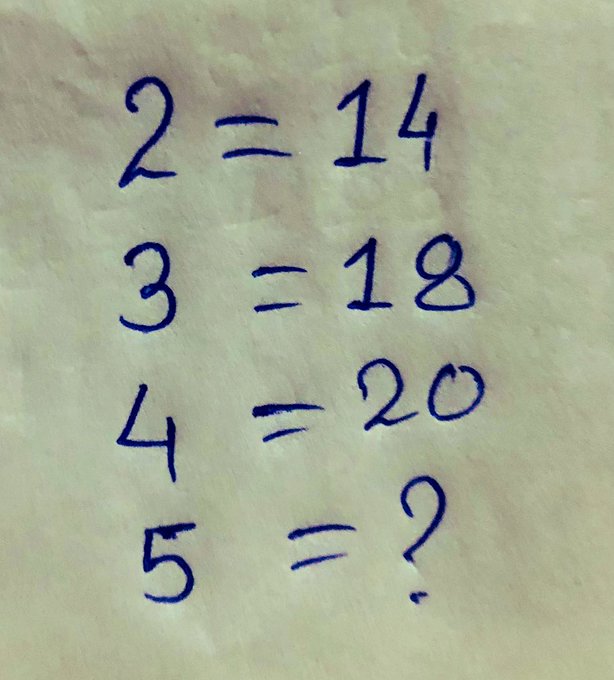 2 = 14
3 = 18
4 = 20
5 = ?